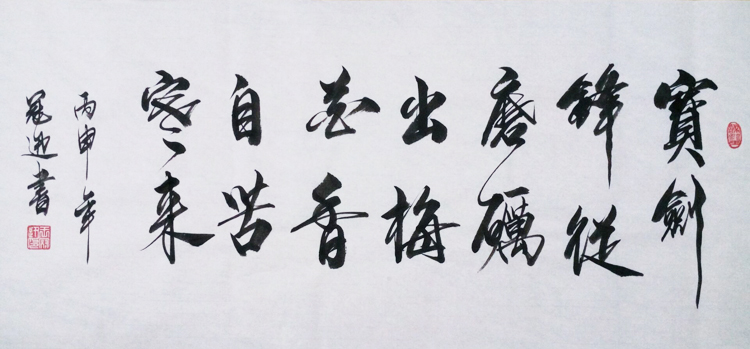 寶劍
鋒從
磨礪
出梅
花香
自苦
寒来
丙申年
冠逊書